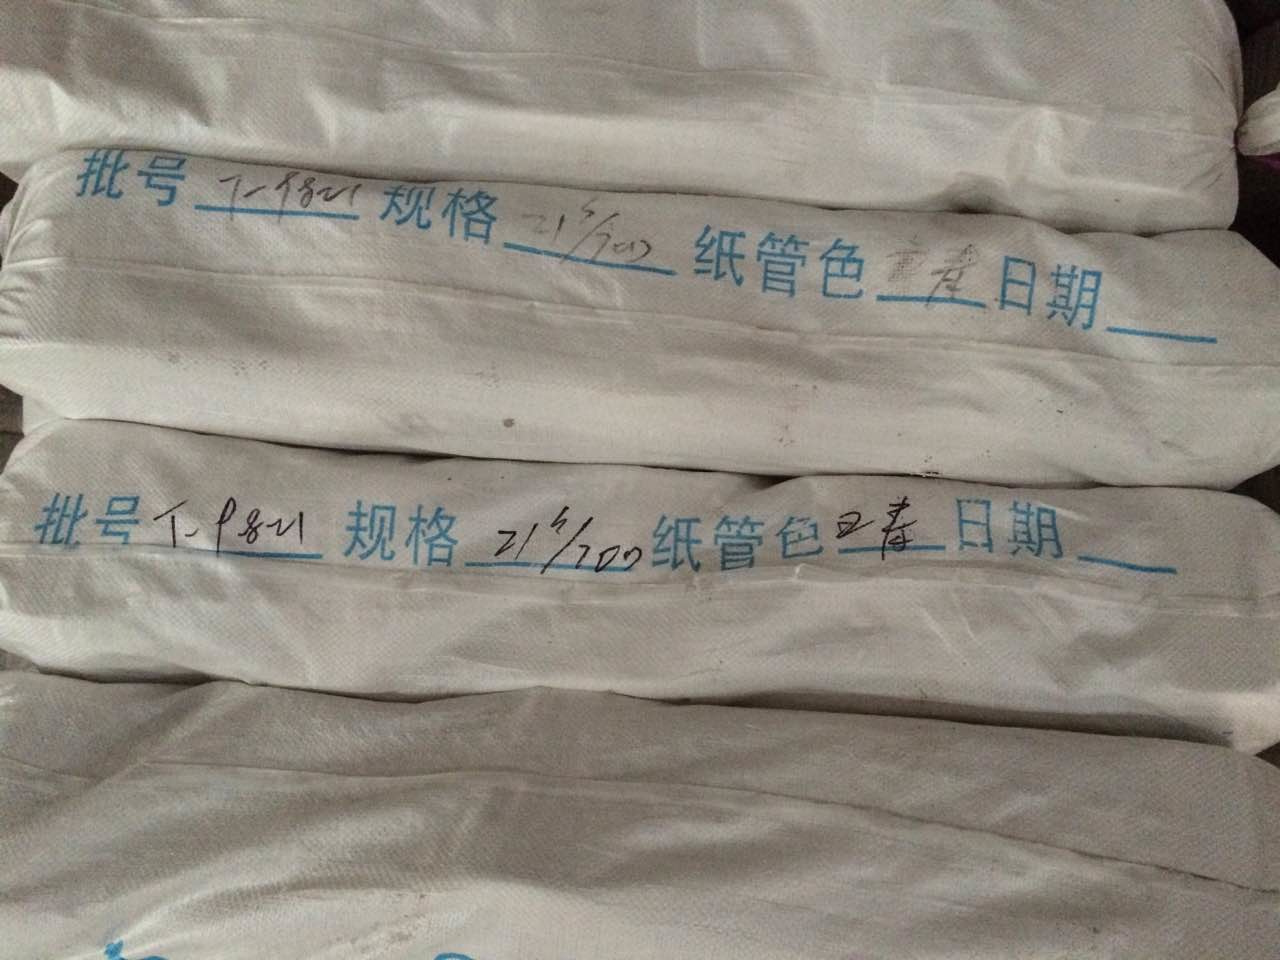 批号 T-9821 规格 21s/200 纸管色 日期
批号 T-9821 规格 21s/200 纸管色 正青 日期